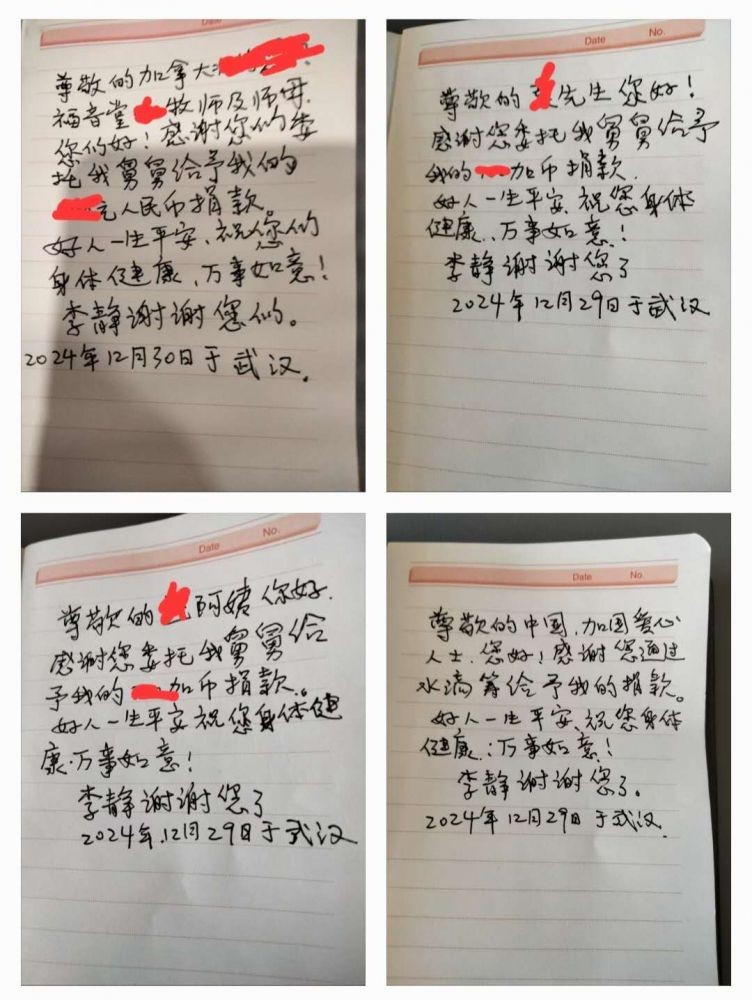 Date
No.
尊敬的加拿大
福音堂 牧师及师母
您们好！感谢您们委
托我舅舅给予我的
元人民币捐款。
好人一生平安、祝您们
身体健康，万事如意！
李静谢谢您们。
2024年12月30日于武汉.
Date
No.
尊敬的 先生您好！
感谢您委托我舅舅给予
我的 加币捐款.
好人一生平安、祝您身体
健康、万事如意！
李静谢谢您了
2024年12月29日于武汉
Date
No.
尊敬的 阿姨你好.
感谢您委托我舅舅给
予我的 加币捐款。
好人一生平安祝您身体健
康.万事如意！
李静谢谢您了
2024年.12月29日于武汉
Date
No.
尊敬的中国,加国爱心
人士.您好！感谢您通过
水滴筹给予我的捐款。
好人一生平安、祝您身体
健康.：万事如意！
李静谢谢您了。
2024年12月29日于武汉